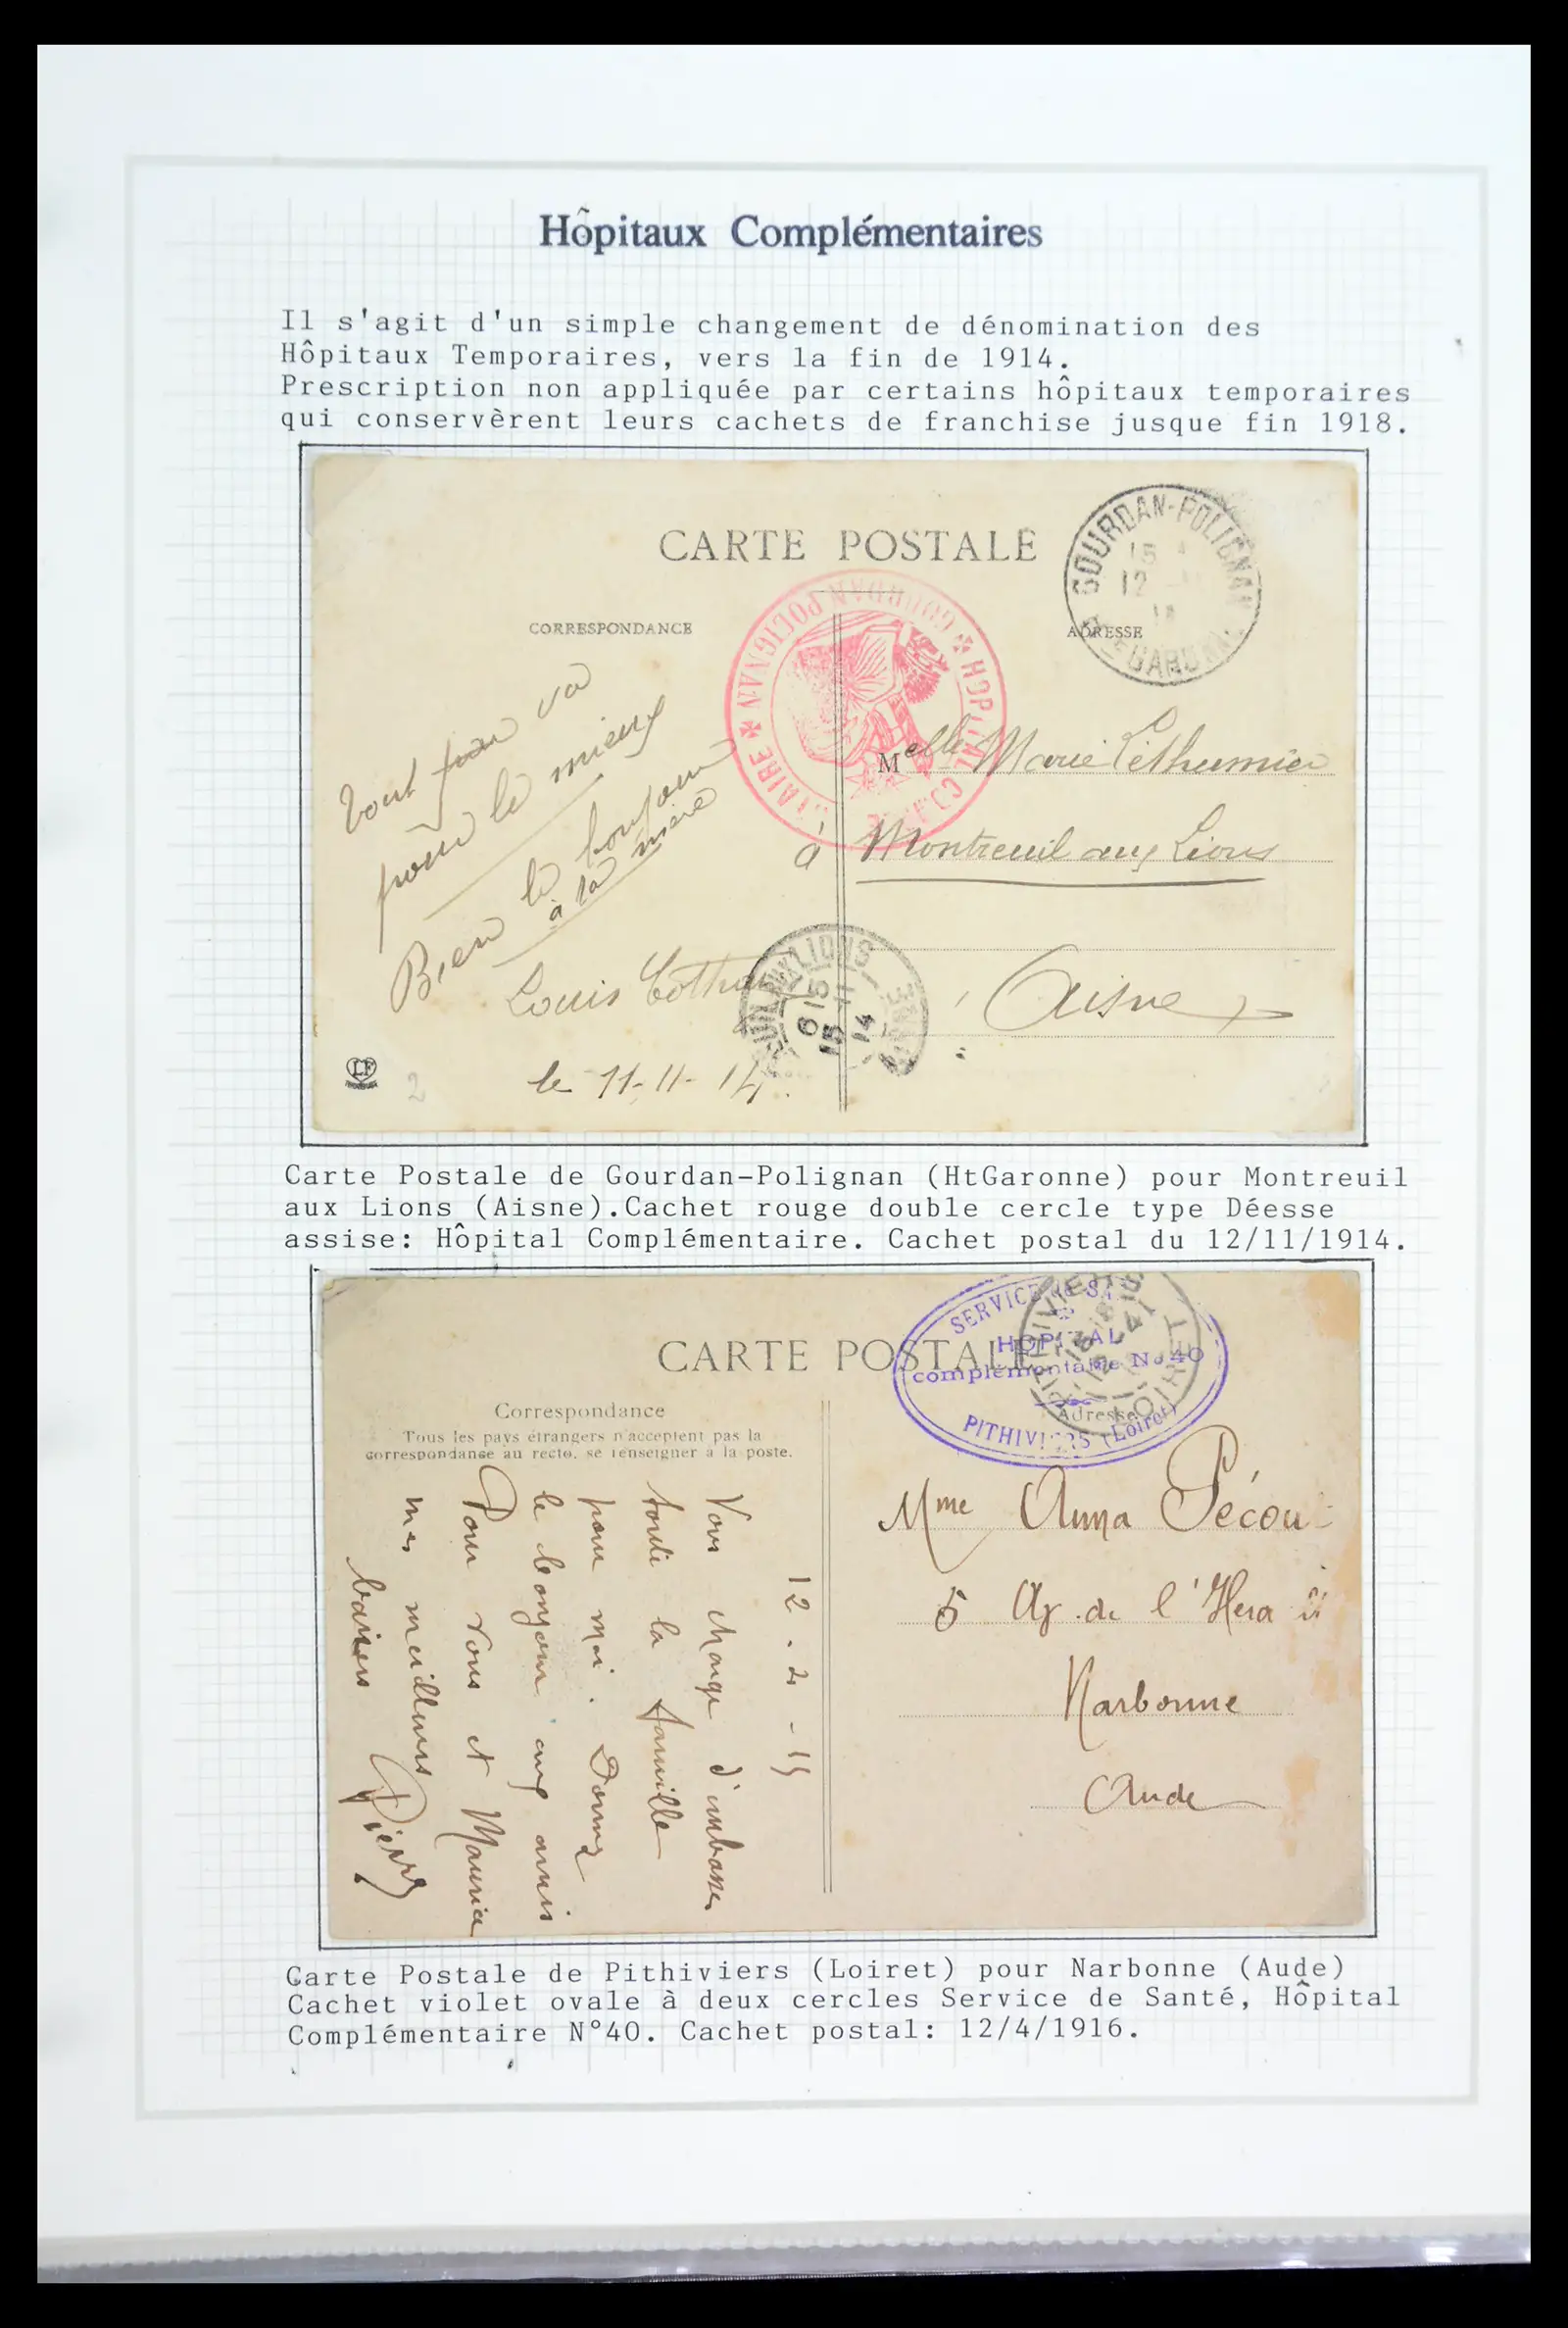 Hôpitaux Complémentaires
Il s'agit d'un simple changement de dénomination des
Hôpitaux Temporaires, vers la fin de 1914.
Prescription non appliquée par certains hôpitaux temporaires
qui conservèrent leurs cachets de franchise jusque fin 1918.
CARTE POSTALE
GOURDAN-POLIGNAN
12
CORRESPONDANCE
ADRESSE
HOPITAL
GOURDAN POLIGNAN
Tout va
pour le mieux
Bien le bonjour
à la mère
Louis
le 11-11-14.
Melle Marie
à Montreuil aux Lions
(Aisne)
LIONS
15
11
14
LF
2
Carte Postale de Gourdan-Polignan (HtGaronne) pour Montreuil
aux Lions (Aisne).Cachet rouge double cercle type Déesse
assise: Hôpital Complémentaire. Cachet postal du 12/11/1914.
CARTE POSTALE
SERVICE de
HOPITAL
complémentaire No 40
PITHIVIERS (Loiret)
LOIRET
Correspondance
Adresse
Tous les pays étrangers n'acceptent pas la
correspondance au recto, se renseigner à la poste.
12.2-15
Vous charge d'embrasser
toute la famille
pour moi. Donnez
le bonjour aux amis
Pour vous et Maurice
mes meilleurs
baisers Pierre
Mme Anna
5 de l'
Narbonne
Aude
Carte Postale de Pithiviers (Loiret) pour Narbonne (Aude)
Cachet violet ovale à deux cercles Service de Santé, Hôpital
Complémentaire N°40. Cachet postal: 12/4/1916.